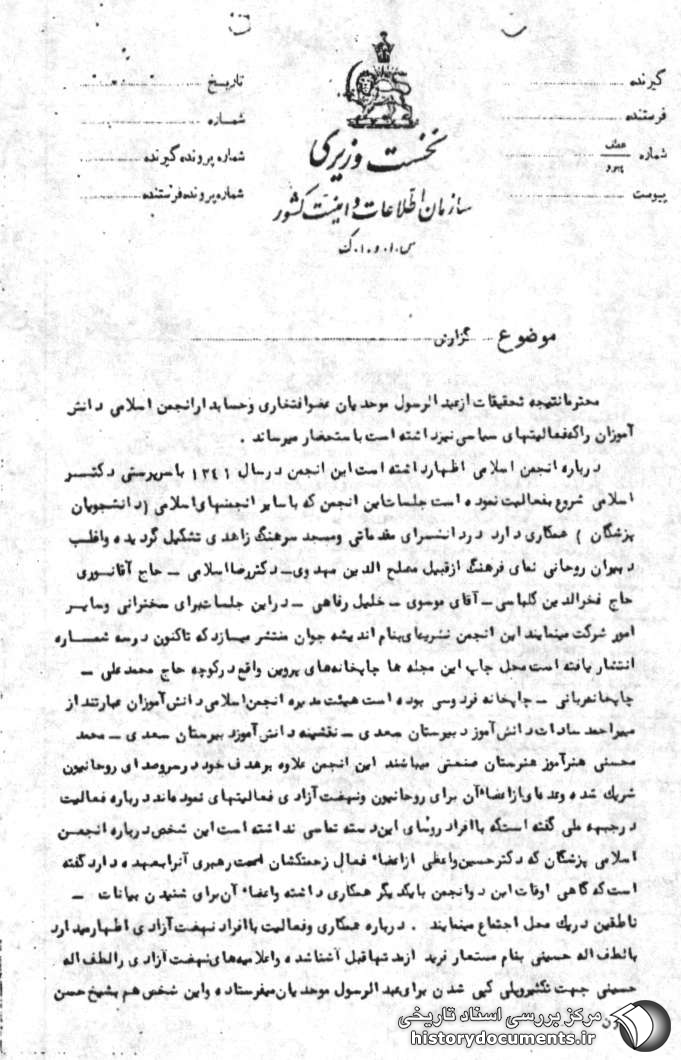 گیرنده
فرستنده
شماره عطف پیرو
پیوست
نخست وزیری
سازمان اطلاعات و امنیت کشور
س.ا.و.ا.ک
تاریخ
شماره
شماره پرونده گیرنده
شماره پرونده فرستنده
موضوع گزارش
محترما نتیجه تحقیقات از عبد الرسول موحدیان عضو افتخاری و حسابدار انجمن اسلامی دانش
آموزان را که فعالیتهای سیاسی نیز داشته است باستحضار میرساند .
درباره انجمن اسلامی اظهار داشته است این انجمن در سال ۱۳۴۱ با سرپرستی دکتر
اسلامی شروع بفعالیت نموده است جلسات این انجمن که با سایر انجمنهای اسلامی (دانشجویان
پزشگان ) همکاری دارد در دانشسرای مقدماتی و مسجد سرهنگ زاهدی تشکیل گردیده و اغلب
دبیران روحانی نمای فرهنگ از قبیل مصلح الدین مهدوی - دکتر رضا اسلامی - حاج آقا نوری
حاج فخرالدین کلباسی - آقای موسوی - خلیل رفاهی - در این جلسات برای سخنرانی و سایر
امور شرکت مینمایند این انجمن نشریه‌ای بنام اندیشه جوان منتشر میسازد که تاکنون در سه شماره
انتشار یافته است محل چاپ این مجله ها چاپخانه‌های پروین واقع در کوچه حاج محمد علی -
چاپخانه ربانی - چاپخانه فردوسی بوده است هیئت مدیره انجمن اسلامی دانش آموزان عبارتند از
میر احمد سادات دانش آموز دبیرستان سعدی - نقشینه دانش آموز دبیرستان سعدی - محمد
محسنی هنرآموز هنرستان صنعتی میباشند این انجمن علاوه بر هدف خود در سر و صدای روحانیون
شریک شده و عده‌ای از اعضاء آن برای روحانیون و نهضت آزادی فعالیتهای نموده‌اند درباره فعالیت
در جبهه ملی گفته است که با افراد رؤسای این دسته تماسی نداشته است این شخص درباره انجمن
اسلامی پزشگان که دکتر حسین واعظی از اعضاء فعال زحمتکشان سمت رهبری آنرا بعهده دارد گفته
است که گاهی اوقات این دو انجمن با یکدیگر همکاری داشته و اعضاء آن برای شنیدن بیانات -
ناطقین در یک محل اجتماع مینمایند . درباره همکاری و فعالیت با افراد نهضت آزادی اظهار میدارد
با لطف اله حسینی بنام مستعار فرید از مدتها قبل آشنا شده و اعلامیه‌های نهضت آزادی را لطف اله
حسینی جهت تکثیر و پلی کپی شدن برای عبد الرسول موحدیان میفرستاده و این شخص هم بشیخ حسن
مرکز بررسی اسناد تاریخی
historydocuments.ir